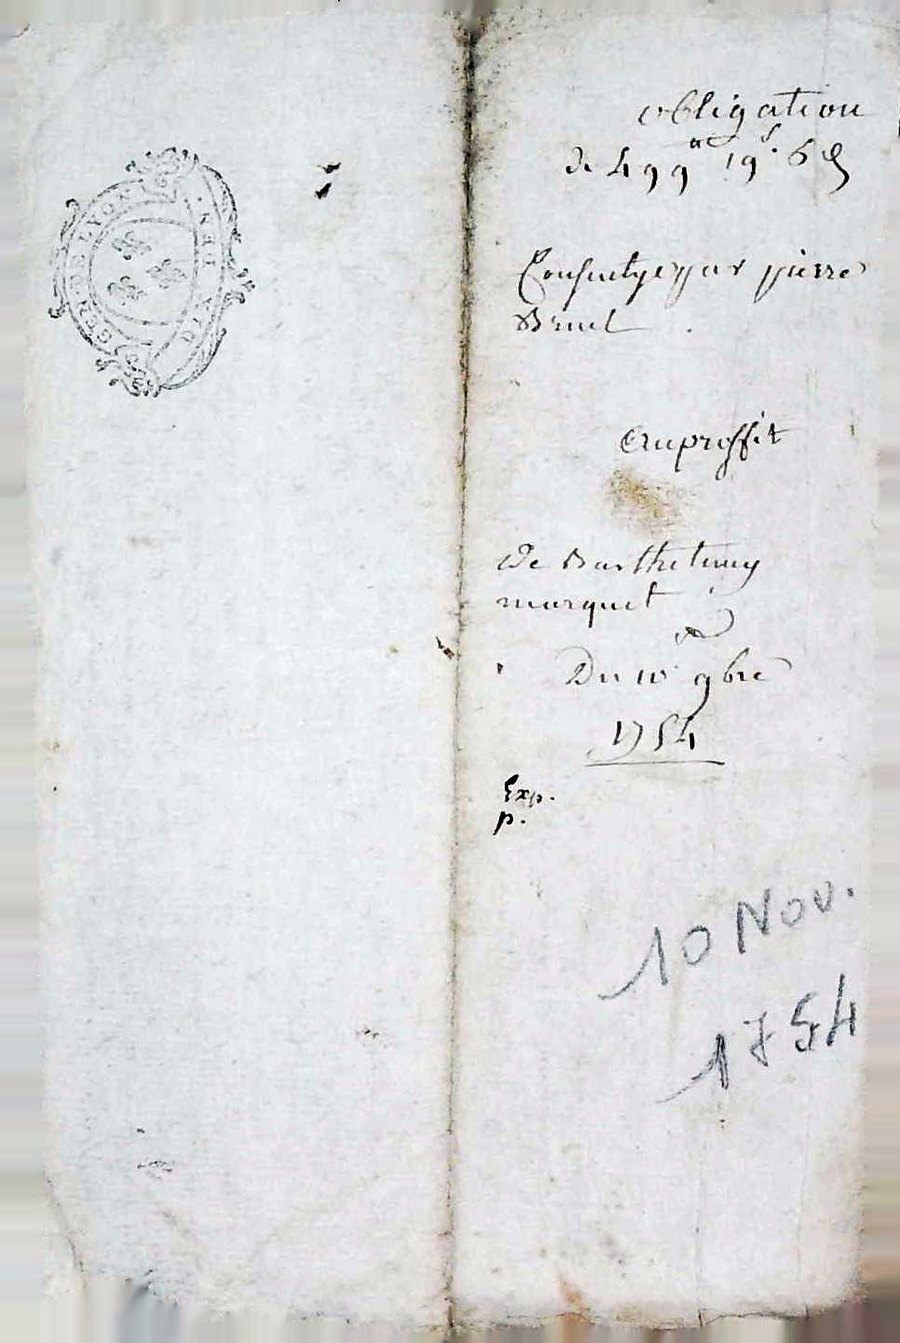 GEN. DE LYON
DIX DEN.
obligation
de 499tt 19s 6d
Consentye par pierre
Bruel
Au proffit
De Barthelemy
marquet
Du 10e 9bre
1754
Exp.
p.
10 Nov.
1754